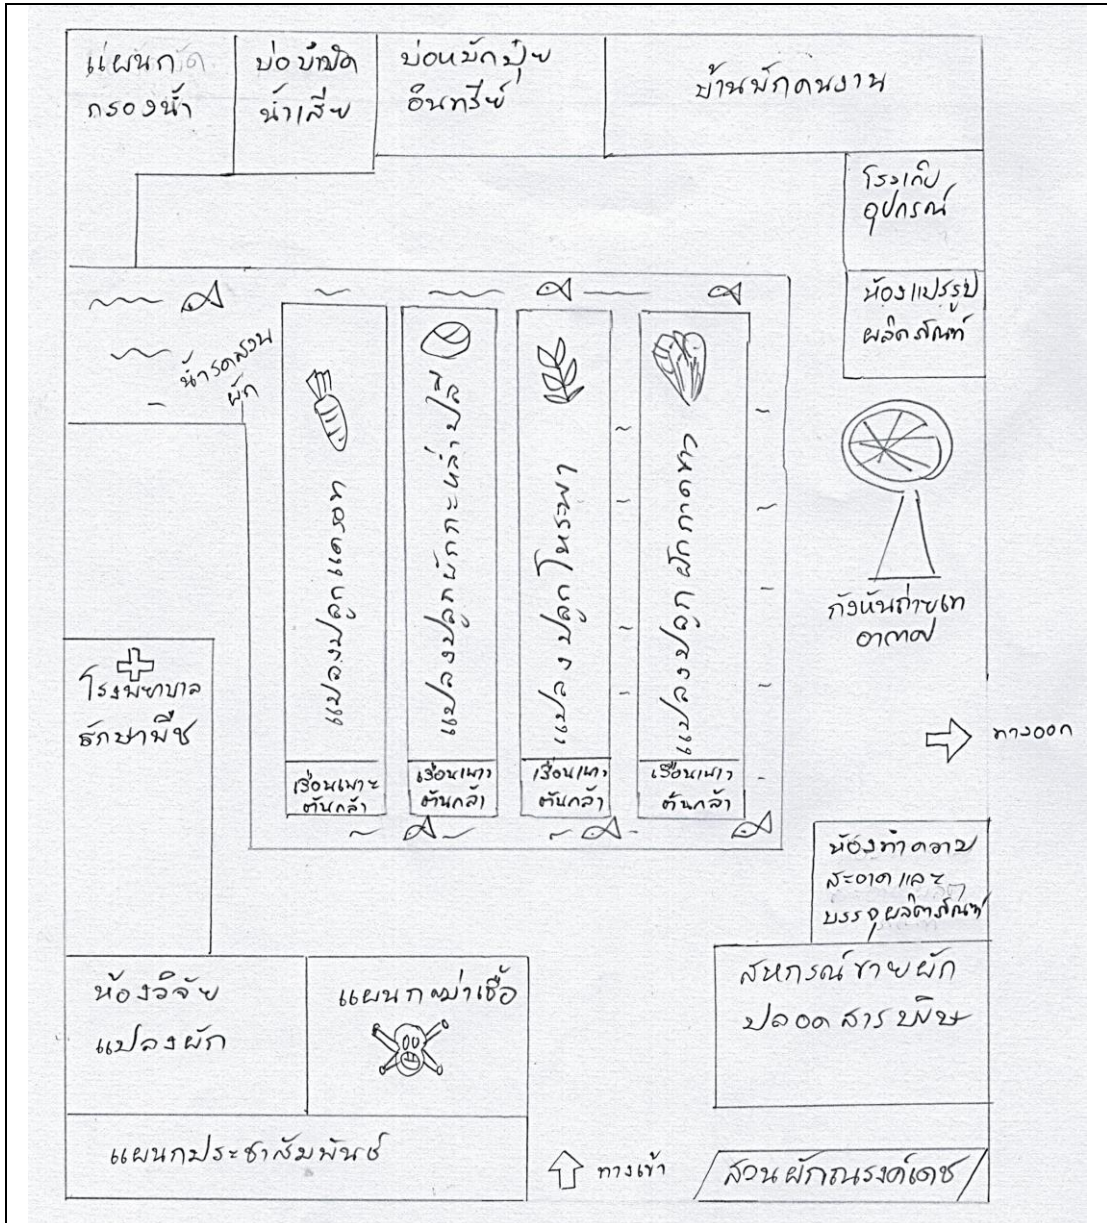 แผนกคัด
กรองน้ำ
บ่อบำบัด
น้ำเสีย
บ่อหมักปุ๋ย
อินทรีย์
บ้านพักคนงาน
โรงเก็บ
อุปกรณ์
ห้องแปรรูป
ผลิตภัณฑ์
น้ำรดสวน
ผัก
แปลงปลูกแครอท
แปลงปลูกผักกะหล่ำปลี
แปลงปลูกโหระพา
แปลงปลูกผักกาดหอม
กังหันถ่ายเท
อากาศ
โรงพยาบาล
รักษาพืช
ทางออก
เรือนเพาะ
ต้นกล้า
เรือนเพาะ
ต้นกล้า
เรือนเพาะ
ต้นกล้า
เรือนเพาะ
ต้นกล้า
ห้องทำความ
สะอาดและ
บรรจุผลิตภัณฑ์
ห้องวิจัย
แปลงผัก
แผนกฆ่าเชื้อ
สหกรณ์ขายผัก
ปลอดสารพิษ
แผนกประชาสัมพันธ์
ทางเข้า
สวนผักณรงค์เดช